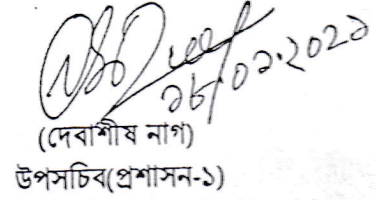 ১৮.০১.২০২১
(দেবাশীষ নাগ)
উপসচিব(প্রশাসন-১)